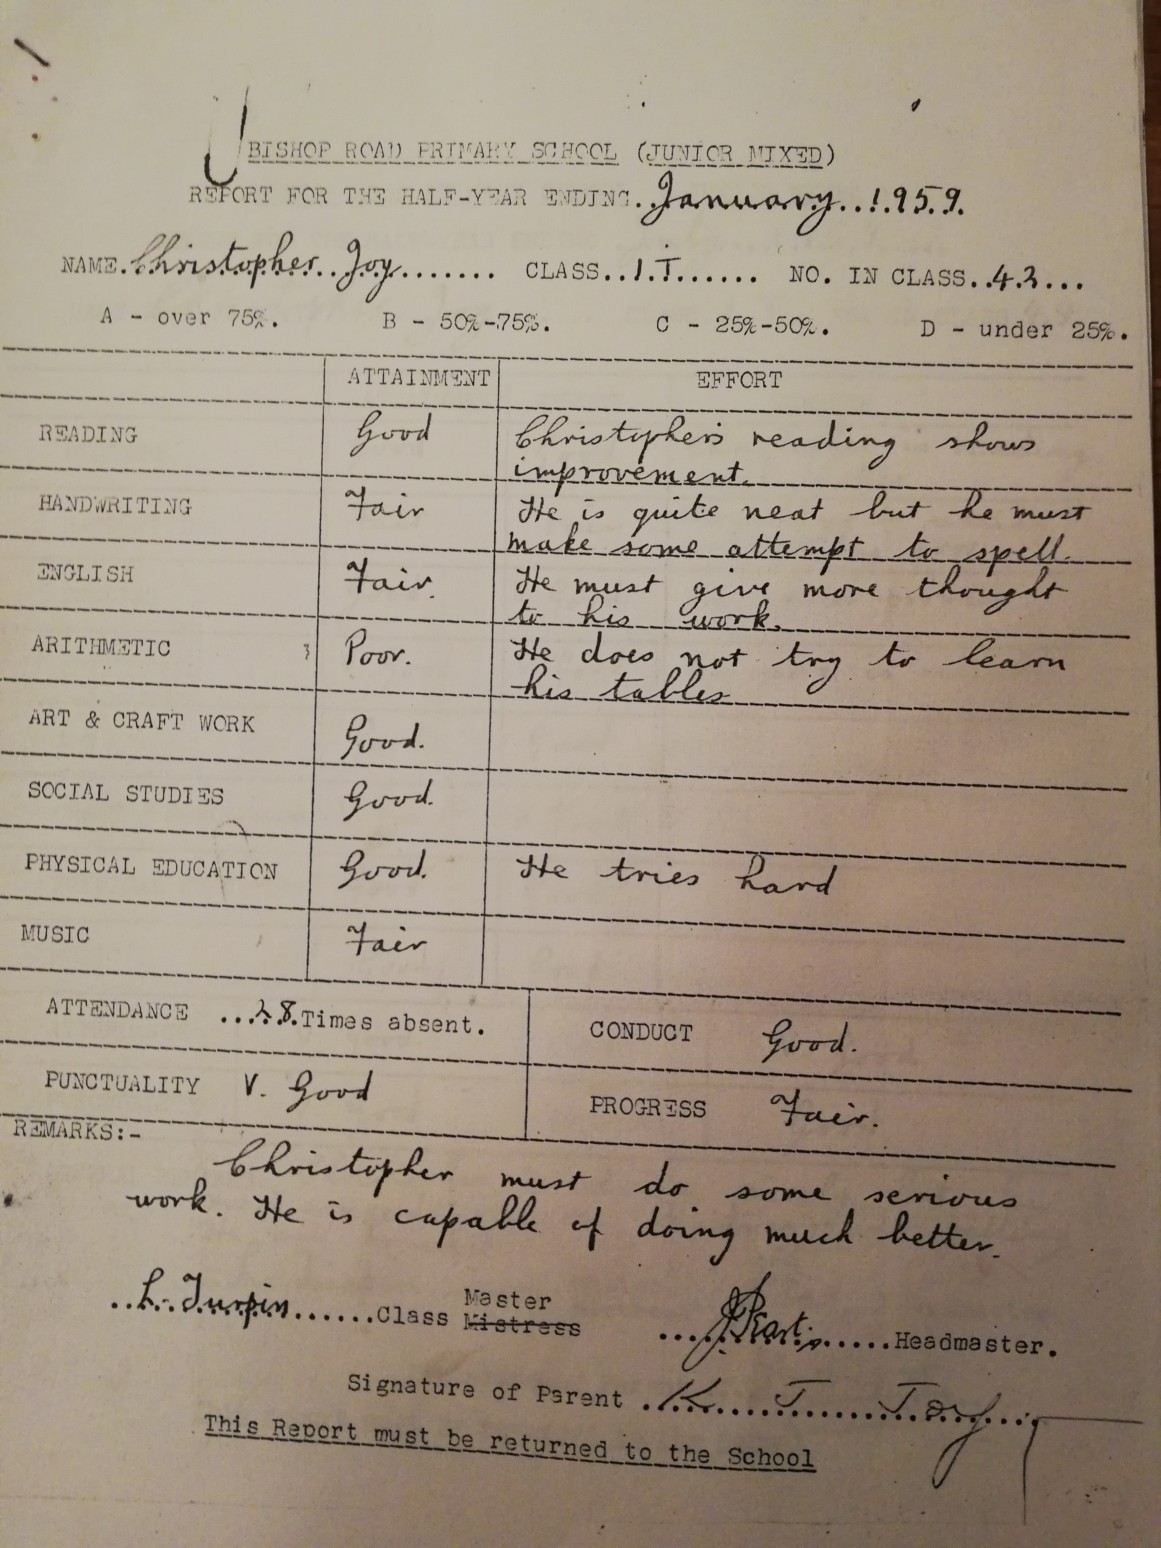 BISHOP ROAD PRIMARY SCHOOL (JUNIOR MIXED)
REPORT FOR THE HALF-YEAR ENDING..January..1959.
NAME.Christopher..Joy....... CLASS..1.T...... NO. IN CLASS..43...
A - over 75%. B - 50%-75%. C - 25%-50%. D - under 25%.
ATTAINMENT EFFORT
READING Good Christopher's reading shows
improvement.
HANDWRITING Fair He is quite neat but he must
make some attempt to spell.
ENGLISH Fair. He must give more thought
to his work.
ARITHMETIC Poor. He does not try to learn
his tables
ART & CRAFT WORK Good.
SOCIAL STUDIES Good.
PHYSICAL EDUCATION Good. He tries hard
MUSIC Fair
ATTENDANCE ...28.Times absent. CONDUCT Good.
PUNCTUALITY V. Good PROGRESS Fair.
REMARKS:-
Christopher must do some serious
work. He is capable of doing much better.
Master
..L.Turpin......Class Mistress ..........Headmaster.
Signature of Parent .K. J. Joy....
This Report must be returned to the School